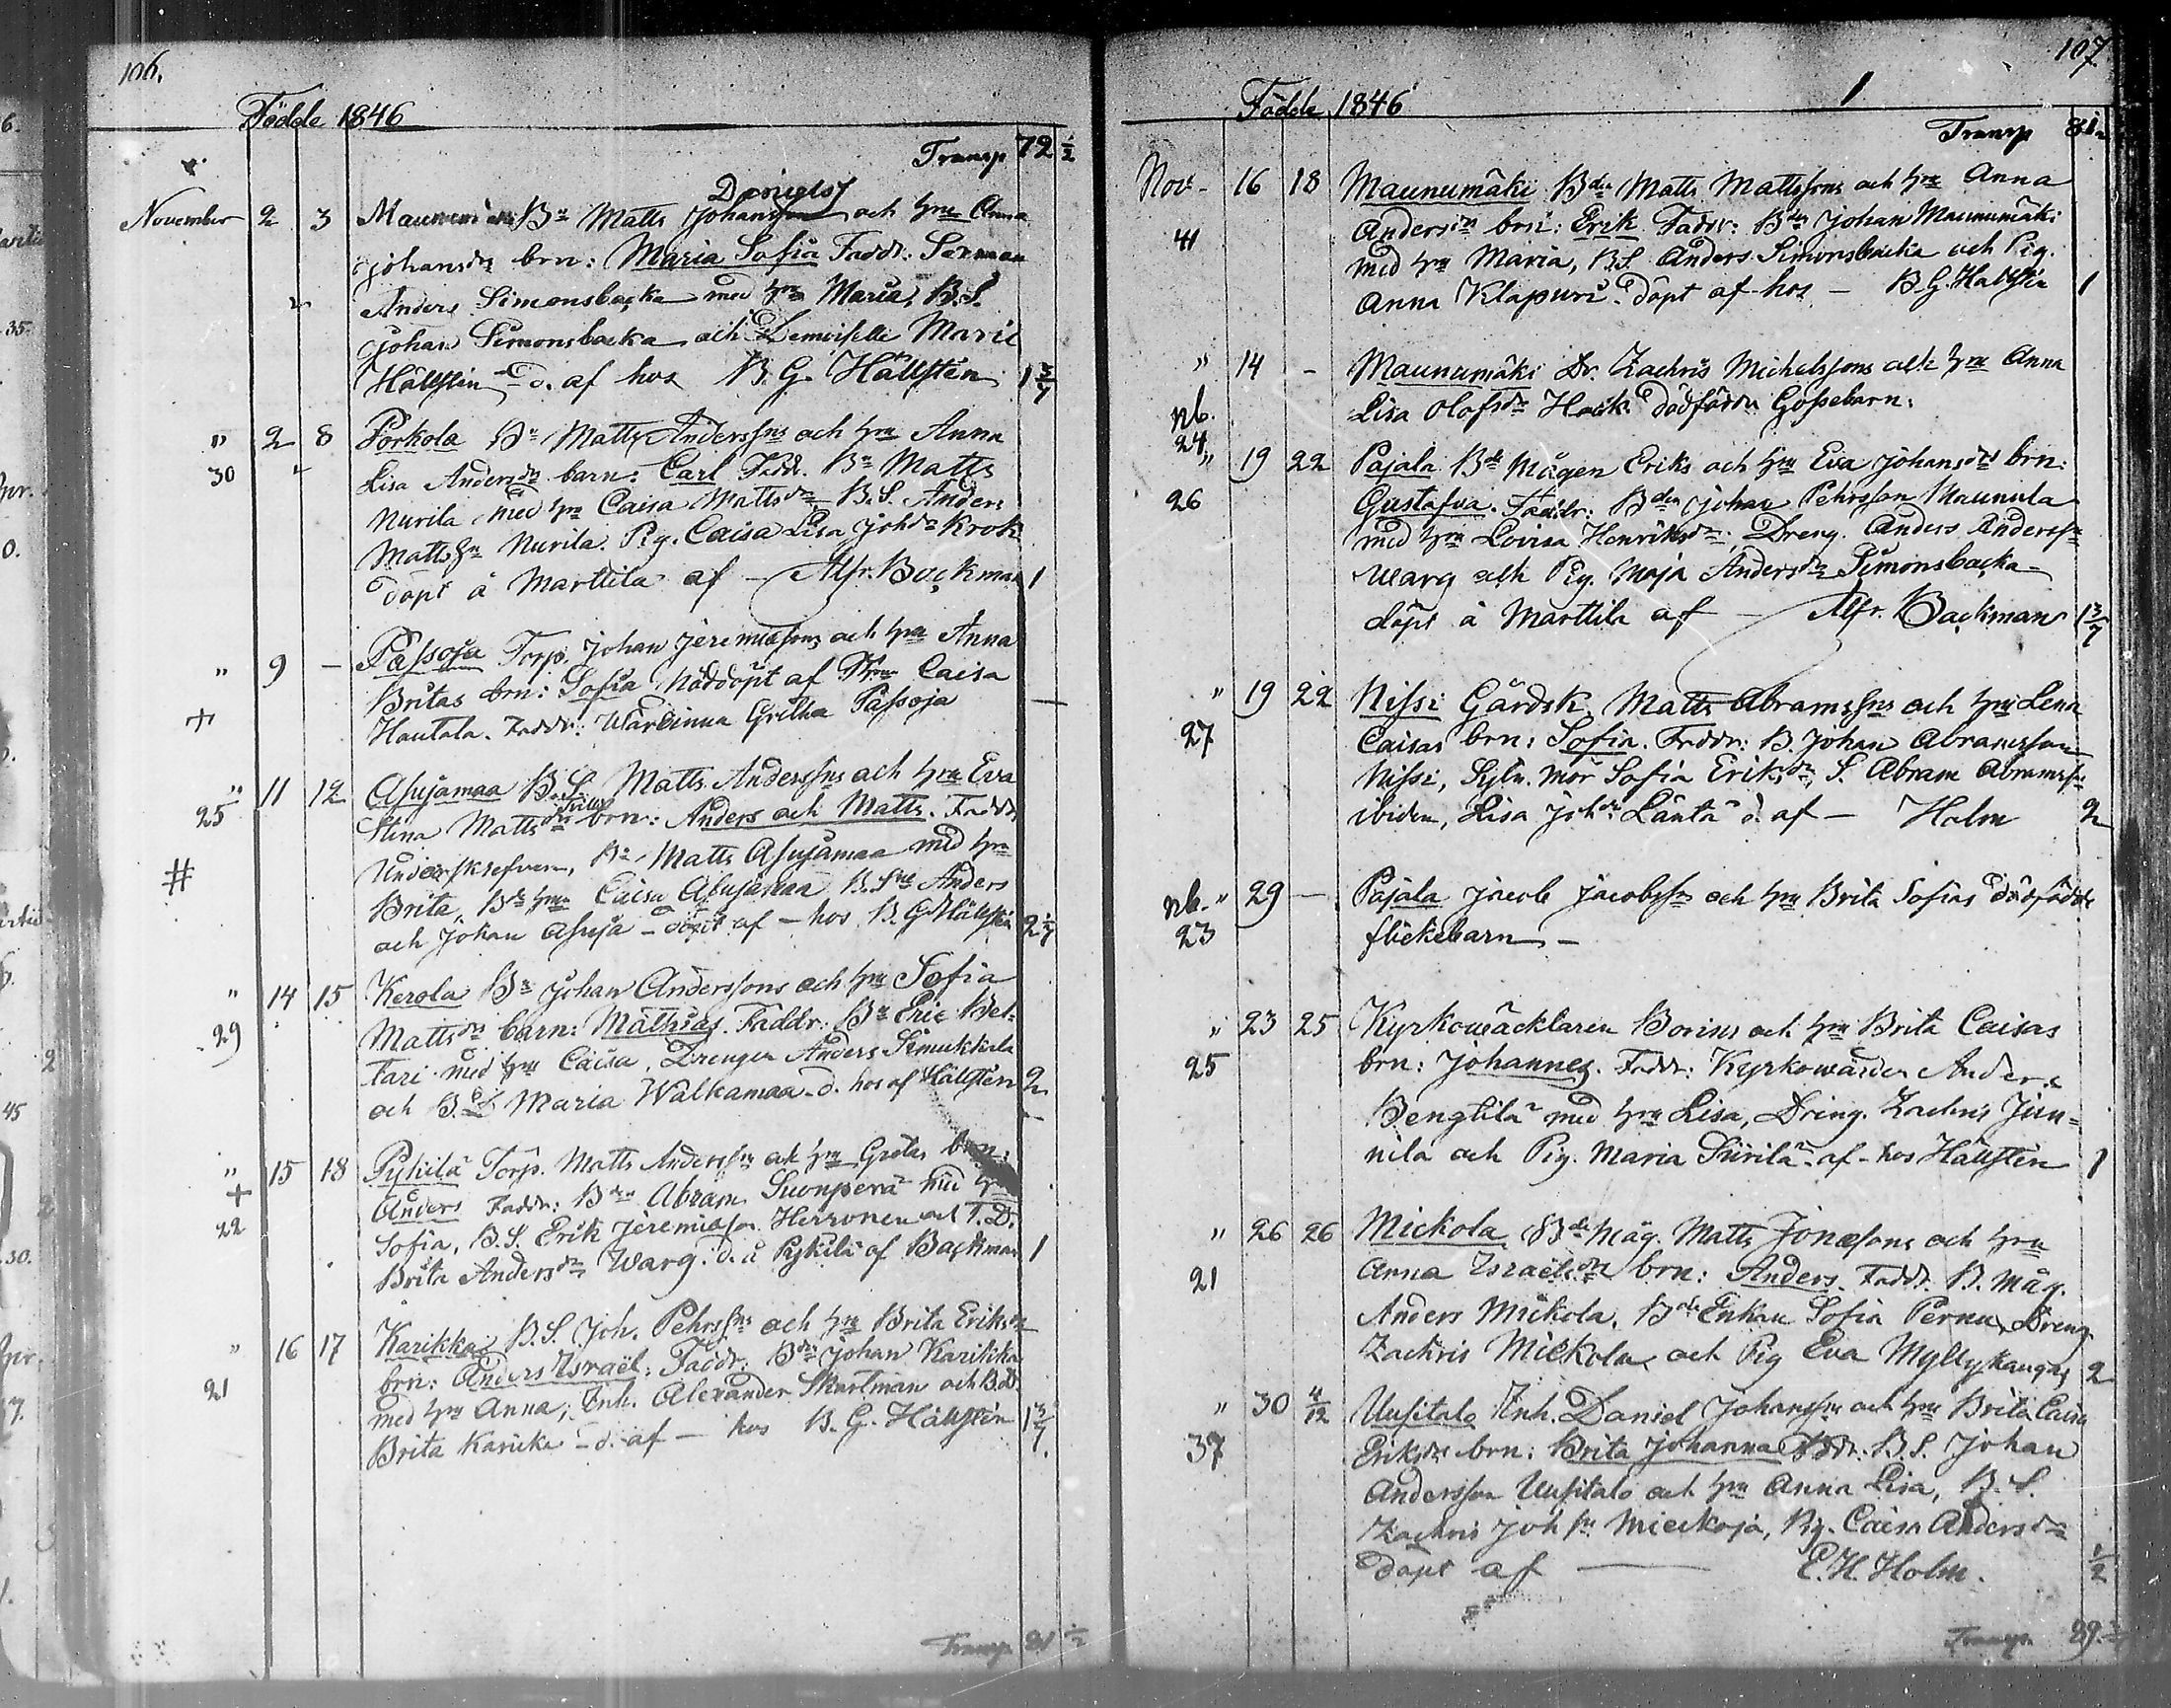 106.
Födde 1846
Transp 72 1/2
November 2 3 Maunumäki Bn Matts Johansson Daniels och hru Anna
Johansdr brn: Maria Sofia Faddr: Sexman
Anders Simonsbacka med hru Maria, B.S.
Johan Simonsbacka och Demoiselle Marie
Hällsten d. af hos B. G. Hällsten 1
" 2 8 Porkola Bn Matts Anderssons och hru Anna
30 Lisa Andersdr barn: Carl Faddr. Bn Matts
Nurila med hru Caisa Mattsdr B.S. Anders
Mattsson Nurila. Pig. Caisa Lisa Johdr Krok
döpt å Marttila af – Alfr. Backman 1
" 9 – Passoja Torp. Johan Jeremiassons och hru Anna
Britas brn: Sofia nöddöpt af Hru Caisa
+ Hautala. Faddr: Wärdinna Gretha Passoja –
" 11 12 Asujamaa B.S. Matts Anderssns och hru Eva
25 Stina Mattsdr brn: Anders och Matts. Faddr
Underskrefven, Bn Matts Asujamaa med hru
# Brita, Bde hru Caisa Asujamaa B.Sne Anders
och Johan Asuja – döpt af – hos B. G. Hällsten 2
" 14 15 Kerola Bn Johan Anderssons och hru Sofia
29 Mattsdr barn: Mathias. Faddr: Bn Eric Bel-
tari med hru Caisa, Drengen Anders Simukkala
och B.D Maria Walkamaa d. hos af Hällsten 2
" 15 18 Pykilä Torp. Matts Anderssns och hru Gretas brn:
+ Anders Faddr: Bden Abram Suonperä med hru
22 Sofia, B.S. Erik Jeremiasson Herronen och T.D.
Brita Andersdr Warg: d. å Pykilä af Backman 1
" 16 17 Karikka B.S. Joh. Pehrssns och hru Brita Eriksdr
21 brn: Anders Israël: Faddr: Bdn Johan Karikka
med hru Anna, Inh. Alexander Skurtman och B.D.
Brita Karikka – d. af – hos B. G. Hällsten 1
Transp 81 1/2
107
Födde 1846
Transp 81 1/2
Nov. 16 18 Maunumäki Bdn Matts Mattssons och hru Anna
41 Andersdr brn: Erik Faddr: Bden Johan Maunumäki
med hru Maria, B.S. Anders Simonsbacka och Pig.
Anna Klapuri. döpt af hos – B. G. Hällsten 1
" 14 – Maunumäki Dr. Zachris Michelssons och hru Anna
nb. Lisa Olofsdr Hack dödfödde Gossebarn.
24
" 19 22 Pajala Bde Mågen Eriks och hru Eva Johansdrs brn:
26 Gustafva. Faddr: Bden Johan Pehrsson Maunula
med hru Lovisa Henriksdr, Dreng. Anders Anderssn
Warg och Pig. Maja Andersdr Simonsbacka
döpt å Marttila af – Alfr. Backman 1
" 19 22 Nissi Gårdsk. Matts Abramssns och hru Lena
27 Caisas brn: Sofia. Faddr: B. Johan Abramsson
Nissi, Sytn. mor Sofia Eriksdr, S. Abram Abramssn
ibidem, Lisa Johdr Läntä d. af – Holm 2
nb. " 29 – Pajala Jacob Jacobssn och hru Brita Sofias dödfödde
23 flickebarn –
" 23 25 Kyrkowäcktaren Borins och hru Brita Caisas
25 brn: Johannes. Faddr: Kyrkowärden Anders
Bengtilä med hru Lisa, Dreng. Zachris Juu-
nila och Pig. Maria Siirilä. af – hos Hällsten 1
" 26 26 Mickola Bde Måg. Matts Jonassons och hru
21 Anna Israelsdr brn: Anders. Faddr. B. måg.
Anders Mickola, Bde Enkan Sofia Pernu, Dreng
Zachris Mickola och Pig Eva Myllykangas 2
" 30 4/12 Uusitalo Inh. Daniel Johanssns och hru Brita Caisa
37 Eriksdr brn: Brita Johanna Faddr: B.S. Johan
Andersson Uusitalo och hru Anna Lisa, B.S.
Zachris Johsn Mieckoja, Pig. Caisa Andersdr
döpt af – E. H. Holm. 1/2
Transp. 89